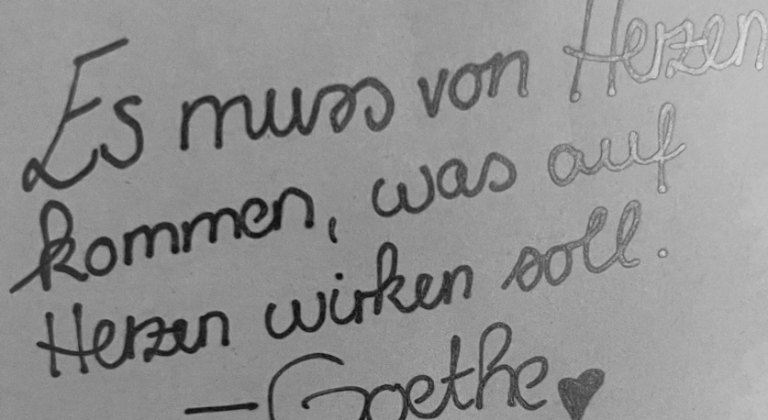 Es muss von Herzen
kommen, was auf
Herzen wirken soll.
—Goethe♥